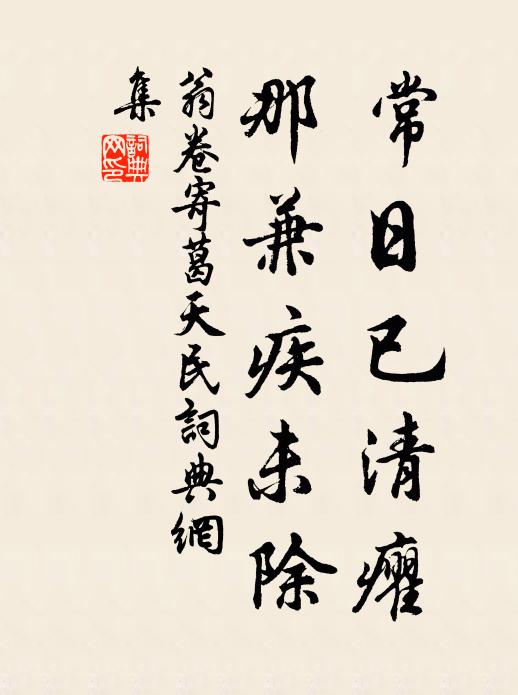 常日已清癯
那兼疾未除
翁卷寄葛天民詞典網
集
詞典網印